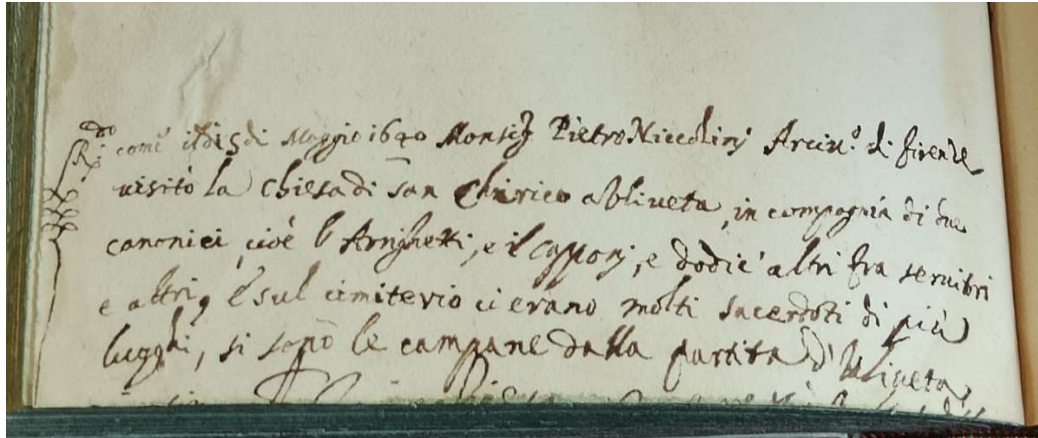 Ri.do come il dì 5 di Maggio 1640 Monsig Pietro Niccolinj Arciu.o di firenze
uisitò la Chiesa di san Chirico a Vliueta, in compagnia di due
canonici, cioè l'Arrighetti, e il Capponj, e dodici altri fra seruitori
e altri, e sul cimiterio ci erano molti sacerdoti di più
luoghi, si sonò le campane dalla partita d'Vliueta,